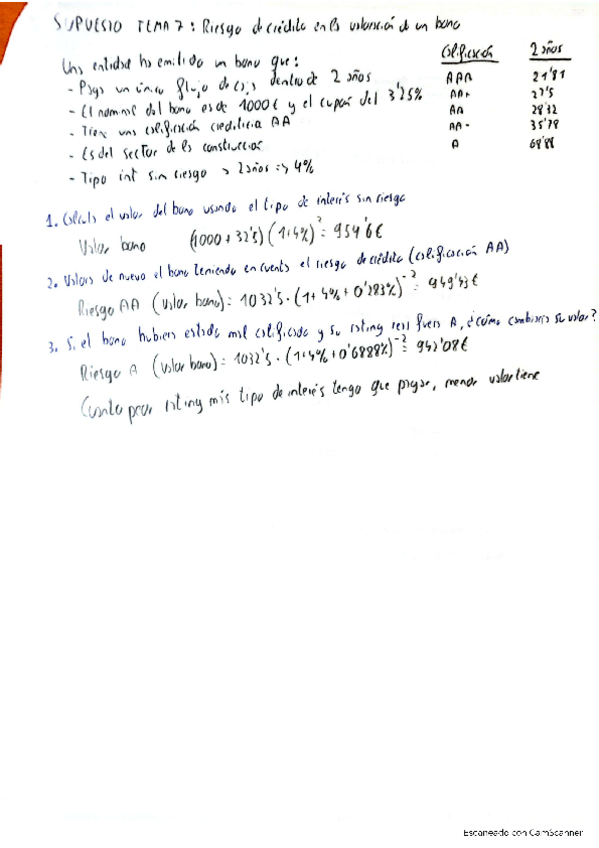 SUPUESTO TEMA 7: Riesgo de crédito en la valoración de un bono
Una entidad ha emitido un bono que:
- Paga un único flujo de caja dentro de 2 años
- El nominal del bono es de 1000€ y el cupón del 3'25%
- Tiene una calificación crediticia AA
- Es del sector de la construcción
- Tipo int sin riesgo → 2 años => 4%
Calificación 2 años
AAA 21'81
AA+ 27'5
AA 28'32
AA- 35'78
A 68'88
1. Calcula el valor del bono usando el tipo de interés sin riesgo
Valor bono (1000 + 32'5) (1+4%)⁻² = 954'6€
2. Valora de nuevo el bono teniendo en cuenta el riesgo de crédito (calificación AA)
Riesgo AA (valor bono) = 1032'5 · (1 + 4% + 0'283%)⁻² = 949'43€
3. Si el bono hubiera estado mal calificado y su rating real fuera A, ¿cómo cambiaría su valor?
Riesgo A (valor bono) = 1032'5 · (1+4% + 0'6888%)⁻² = 942'08€
Cuanto peor rating más tipo de interés tengo que pagar, menor valor tiene
Escaneado con CamScanner